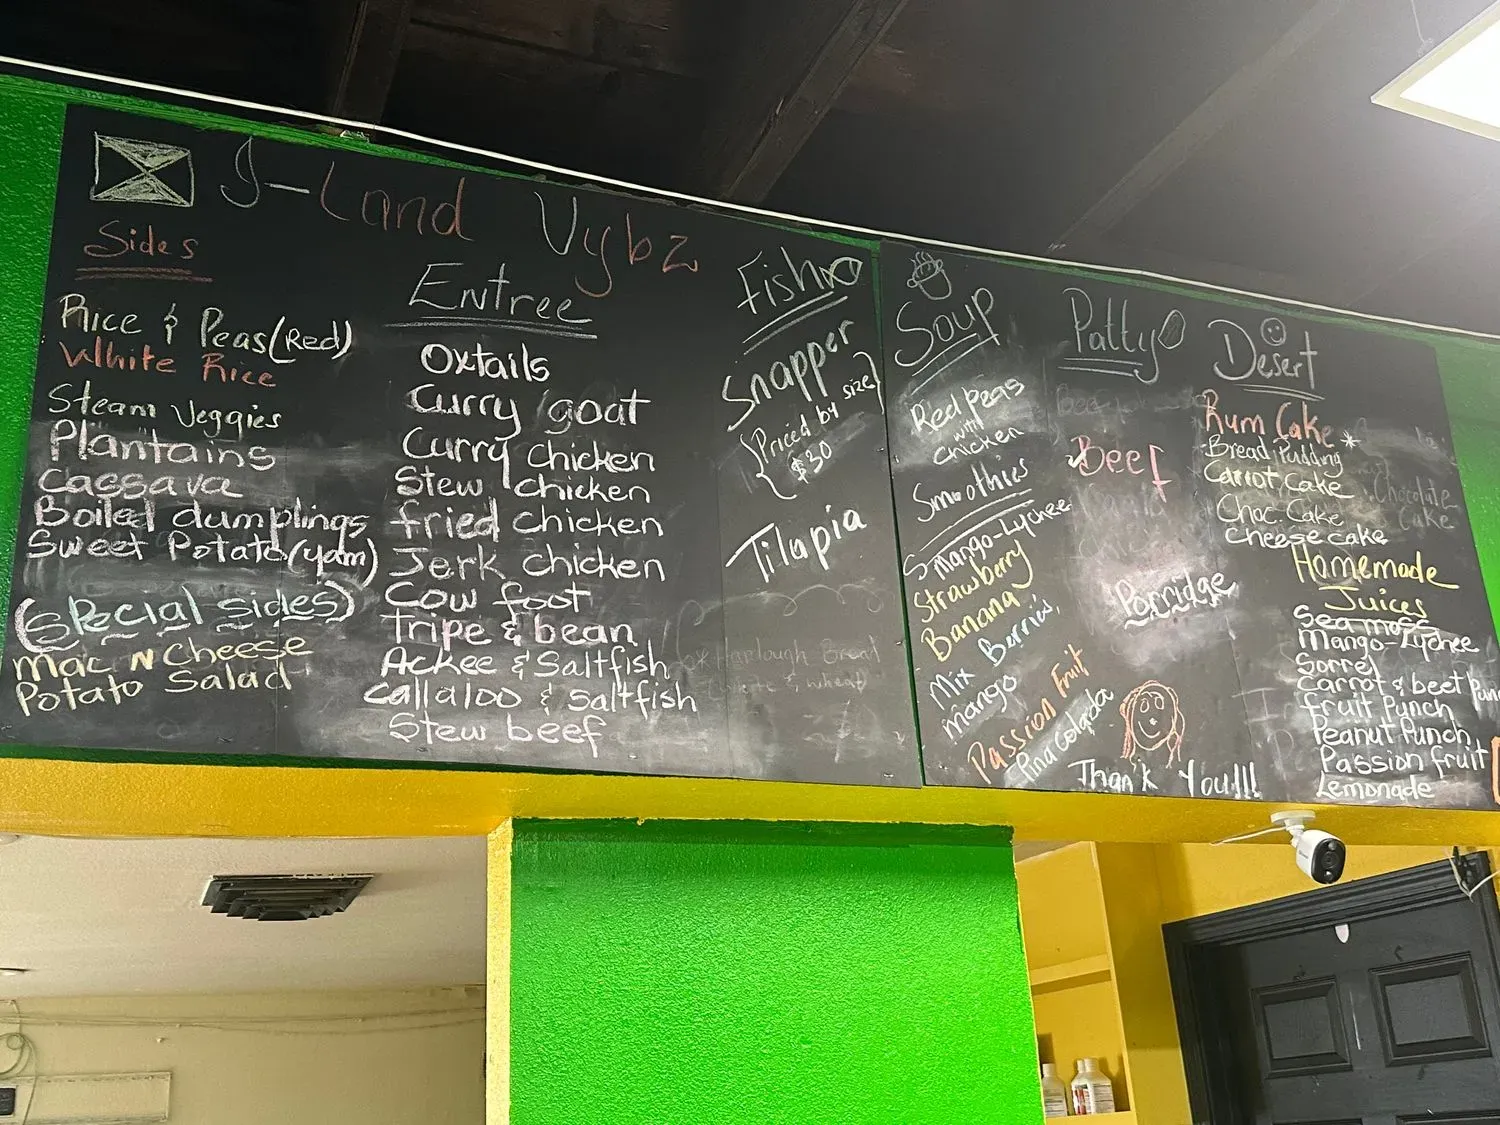 I-Land Vybz
Sides
Rice & Peas (Red)
White Rice
Steam Veggies
Plantains
Cassava
Boiled dumplings
Sweet Potato (yam)
(Special sides)
Mac N Cheese
Potato Salad
Entree
Oxtails
Curry goat
Curry chicken
Stew chicken
fried chicken
Jerk chicken
Cow foot
Tripe & bean
Ackee & Saltfish
Callaloo & Saltfish
Stew beef
Fish
Snapper
{Priced by size}
$30
Tilapia
Harlough Bread
& wheat
Soup
Red Peas
with
chicken
Smoothies
Mango-Lychee
Strawberry
Banana
Mix Berries,
mango
Passion Fruit
Pina Colada
Patty
Beef
Porridge
Thank You!!!
Desert
Rum Cake
Bread Pudding
Carrot Cake
Choc. Cake
Cheese cake
Chocolate
Cake
Homemade
Juices
Sea moss
Mango-Lychee
Sorrel
Carrot & beet
fruit Punch
Peanut Punch
Passion fruit
Lemonade